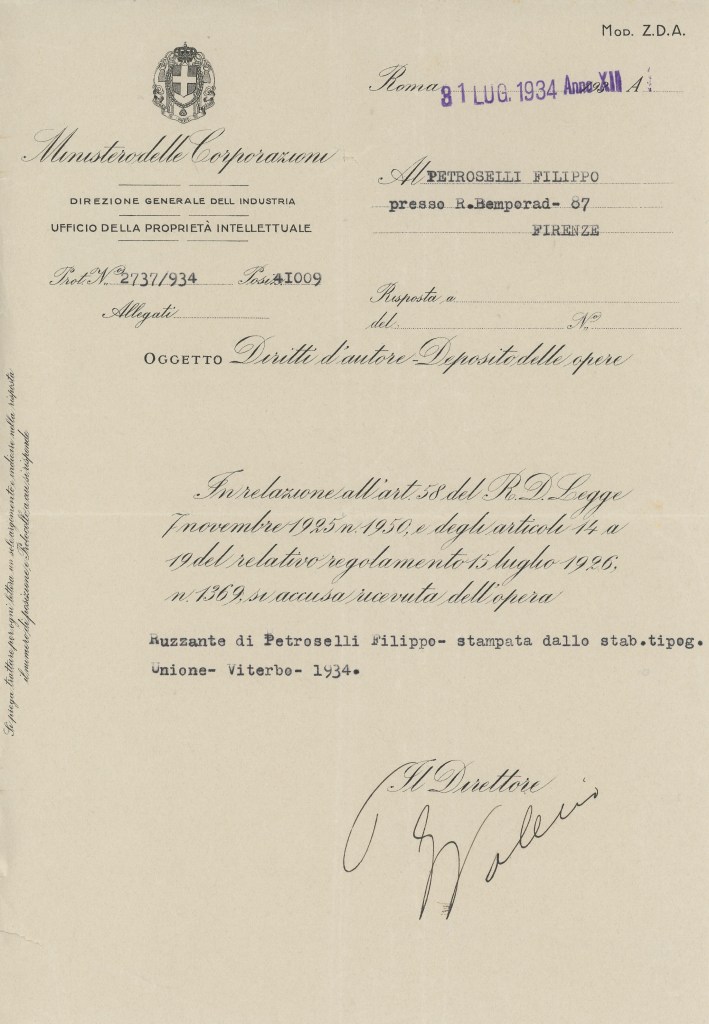 MOD. Z.D.A.
Roma 31 LUG. 1934 Anno XII A
Ministero delle Corporazioni
DIREZIONE GENERALE DELL INDUSTRIA
UFFICIO DELLA PROPRIETÀ INTELLETTUALE
Al PETROSELLI FILIPPO
presso R.Bemporad- 87
FIRENZE
Prot. N.º 2737/934 Posiz. 4I009
Allegati
Risposta a
del N.º
OGGETTO Diritti d'autore - Deposito delle opere
Si prega trattare per ogni lettera un solo argomento e indicare nella risposta
il numero di posizione e Protocollo a cui si risponde
In relazione all'art. 58 del R. D. Legge
7 novembre 1925 n. 1950, e degli articoli 14 a
19 del relativo regolamento 15 luglio 1926,
n. 1369, si accusa ricevuta dell'opera
Ruzzante di Petroselli Filippo- stampata dallo stab.tipog.
Unione- Viterbo- 1934.
Il Direttore